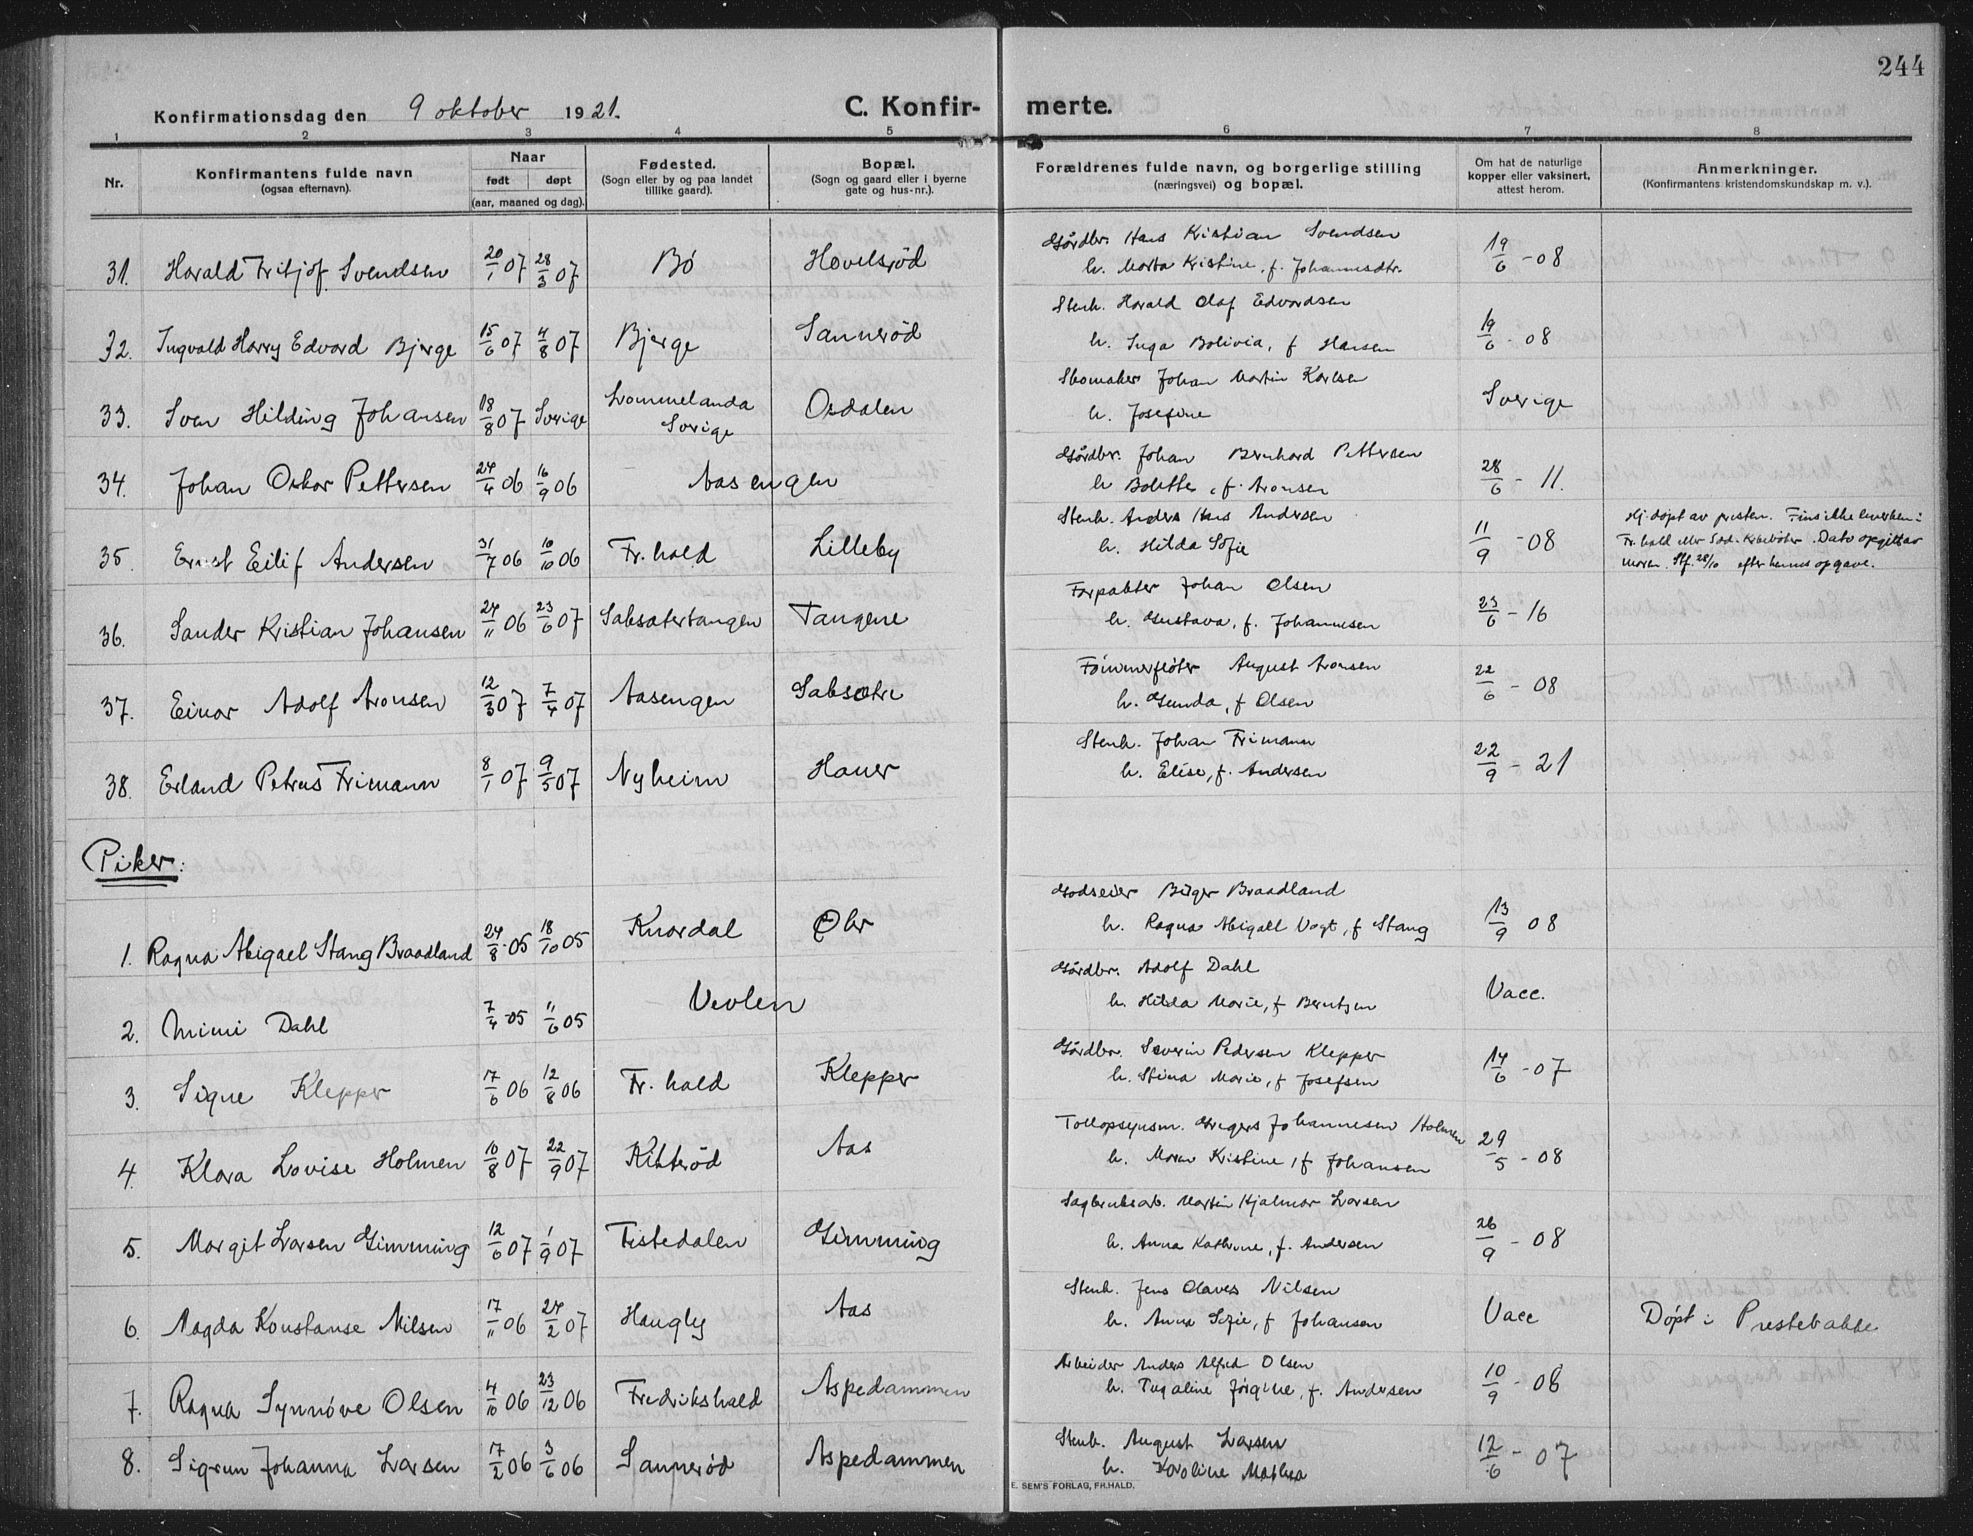 244
Konfirmationsdag den 9 oktober 1921. C. Konfirmerte.
1 2 3 4 5 6 7 8
Nr. Konfirmantens fulde navn (ogsaa efternavn). Naar født døpt (aar, maaned og dag). Fødested. (Sogn eller by og paa landet tillike gaard). Bopæl. (Sogn og gaard eller i byerne gate og hus-nr.). Forældrenes fulde navn, og borgerlige stilling (næringsvei) og bopæl. Om hat de naturlige kopper eller vaksinert, attest herom. Anmerkninger. (Konfirmantens kristendomskundskap m. v.).
31. Harald Fritjof Svendsen 20/1 07 28/3 07 Bø Hovelsrød Gårdbr. Hans Kristian Svendsen 19/6 - 08
h. Marta Kristine, f. Johannesdtr.
32. Ingvald Harry Edvard Bjerge 15/6 07 4/8 07 Bjerge Sannerød Stenh. Harald Olaf Edvardsen 19/6 - 08
h. Inga Bolivia, f Hansen
33. Sven Hilding Johansen 18/8 07 Sverige Lommelanda Sverige Osdalen Skomaker Johan Martin Karlsen Sverige
h. Josefine
34. Johan Oskar Pettersen 24/4 06 16/9 06 Aasengen Gårdbr. Johan Bernhard Pettersen 28/6 - 11.
h Bolette, f. Aronsen
35. Ernst Eilif Andersen 31/7 06 10/10 06 Fr.hald Lilleby Stenh. Anders Hans Andersen 11/9 - 08 Hj. døpt av presten. Fins ikke hverken i
h. Hilda Sofie Fr.hald eller Idd. Kirkebøker. Dato opgitt av
moren. Stf. 28/10 efter hennes opgave.
36. Sander Kristian Johansen 24/11 06 23/6 07 Saksætertangen Tangene Forpakter Johan Olsen 23/6 - 16
h. Gustava, f. Johannesen
37. Einar Adolf Aronsen 12/3 07 7/4 07 Aasengen Saksætre Tømmerfløter August Aronsen 22/6 - 08
h. Gunda, f Olsen
38. Erland Petrus Frimann 8/1 07 9/5 07 Nyheim Hauer Stenh. Johan Frimann 22/9 - 21
h. Elise, f. Andersen
Piker:
1. Ragna Abigael Stang Braadland 24/8 05 18/10 05 Knardal Øbr Godseier Birger Braadland 13/9 08
h. Ragna Abigael Vogt, f Stang
2. Mimi Dahl 7/4 05 11/6 05 Vevlen Gårdbr. Adolf Dahl Vacc.
h. Hilda Marie, f Berntsen
3. Signe Klepper 17/6 06 12/8 06 Fr. hald Klepper Gårdbr. Severin Pedersen Klepper 14/6 - 07
h. Stina Marie, f Josefsen
4. Klara Lovise Holmen 10/8 07 22/9 07 Kikkerød Aas Tollopsynsm. Gregers Johannesen Holmen 29/5 - 08
h. Maren Kristine, f Johansen
5. Margit Larsen Gimming 12/6 07 1/9 07 Tistedalen Gimming Sagbruksarb. Martin Hjalmar Larsen 26/9 - 08
h. Anna Kathrine, f. Andersen
6. Magda Konstanse Nilsen 17/11 06 24/2 07 Haugly Aas Stenh. Jens Olaves Nilsen Vacc Døpt i Prestebakke
h. Anna Sofie, f Johansen
7. Ragna Synnøve Olsen 4/10 06 23/12 06 Fredrikshald Aspedammen Arbeider Anders Alfred Olsen 10/9 - 08
h. Jørgine, f. Andersen
8. Sigrun Johanna Larsen 17/2 06 3/6 06 Sannerød Aspedammen Stenh. August Larsen 12/6 - 07
h. Karoline Mathea
E. SEM'S FORLAG, FR.HALD.